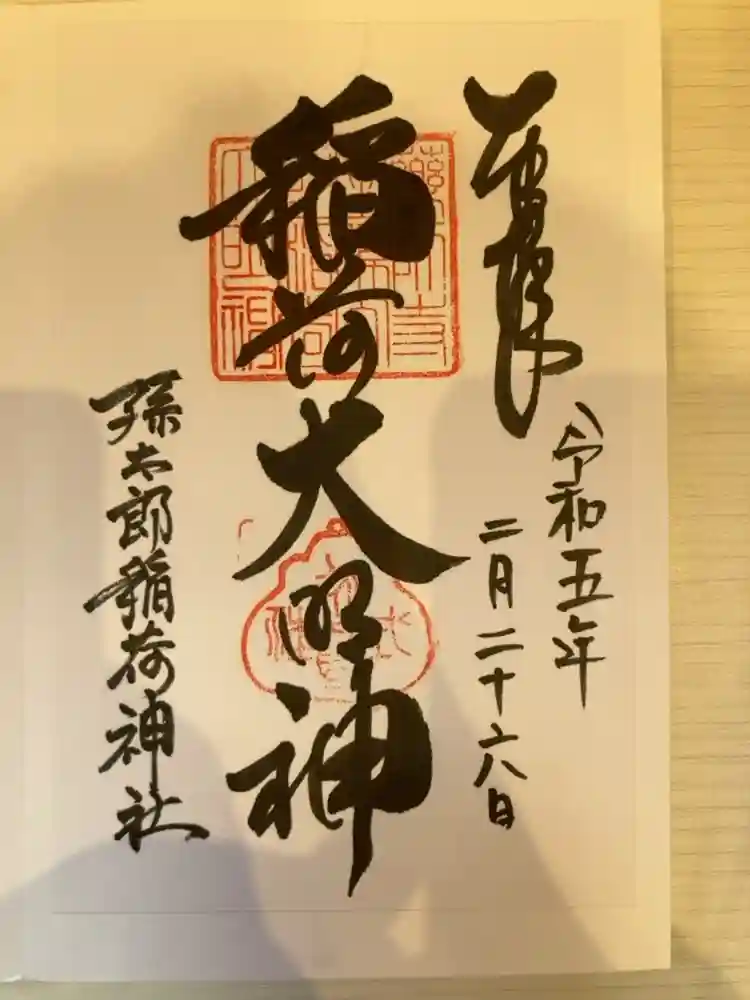 奉拝
令和五年
二月二十六日
稲荷大明神
孫太郎稲荷神社